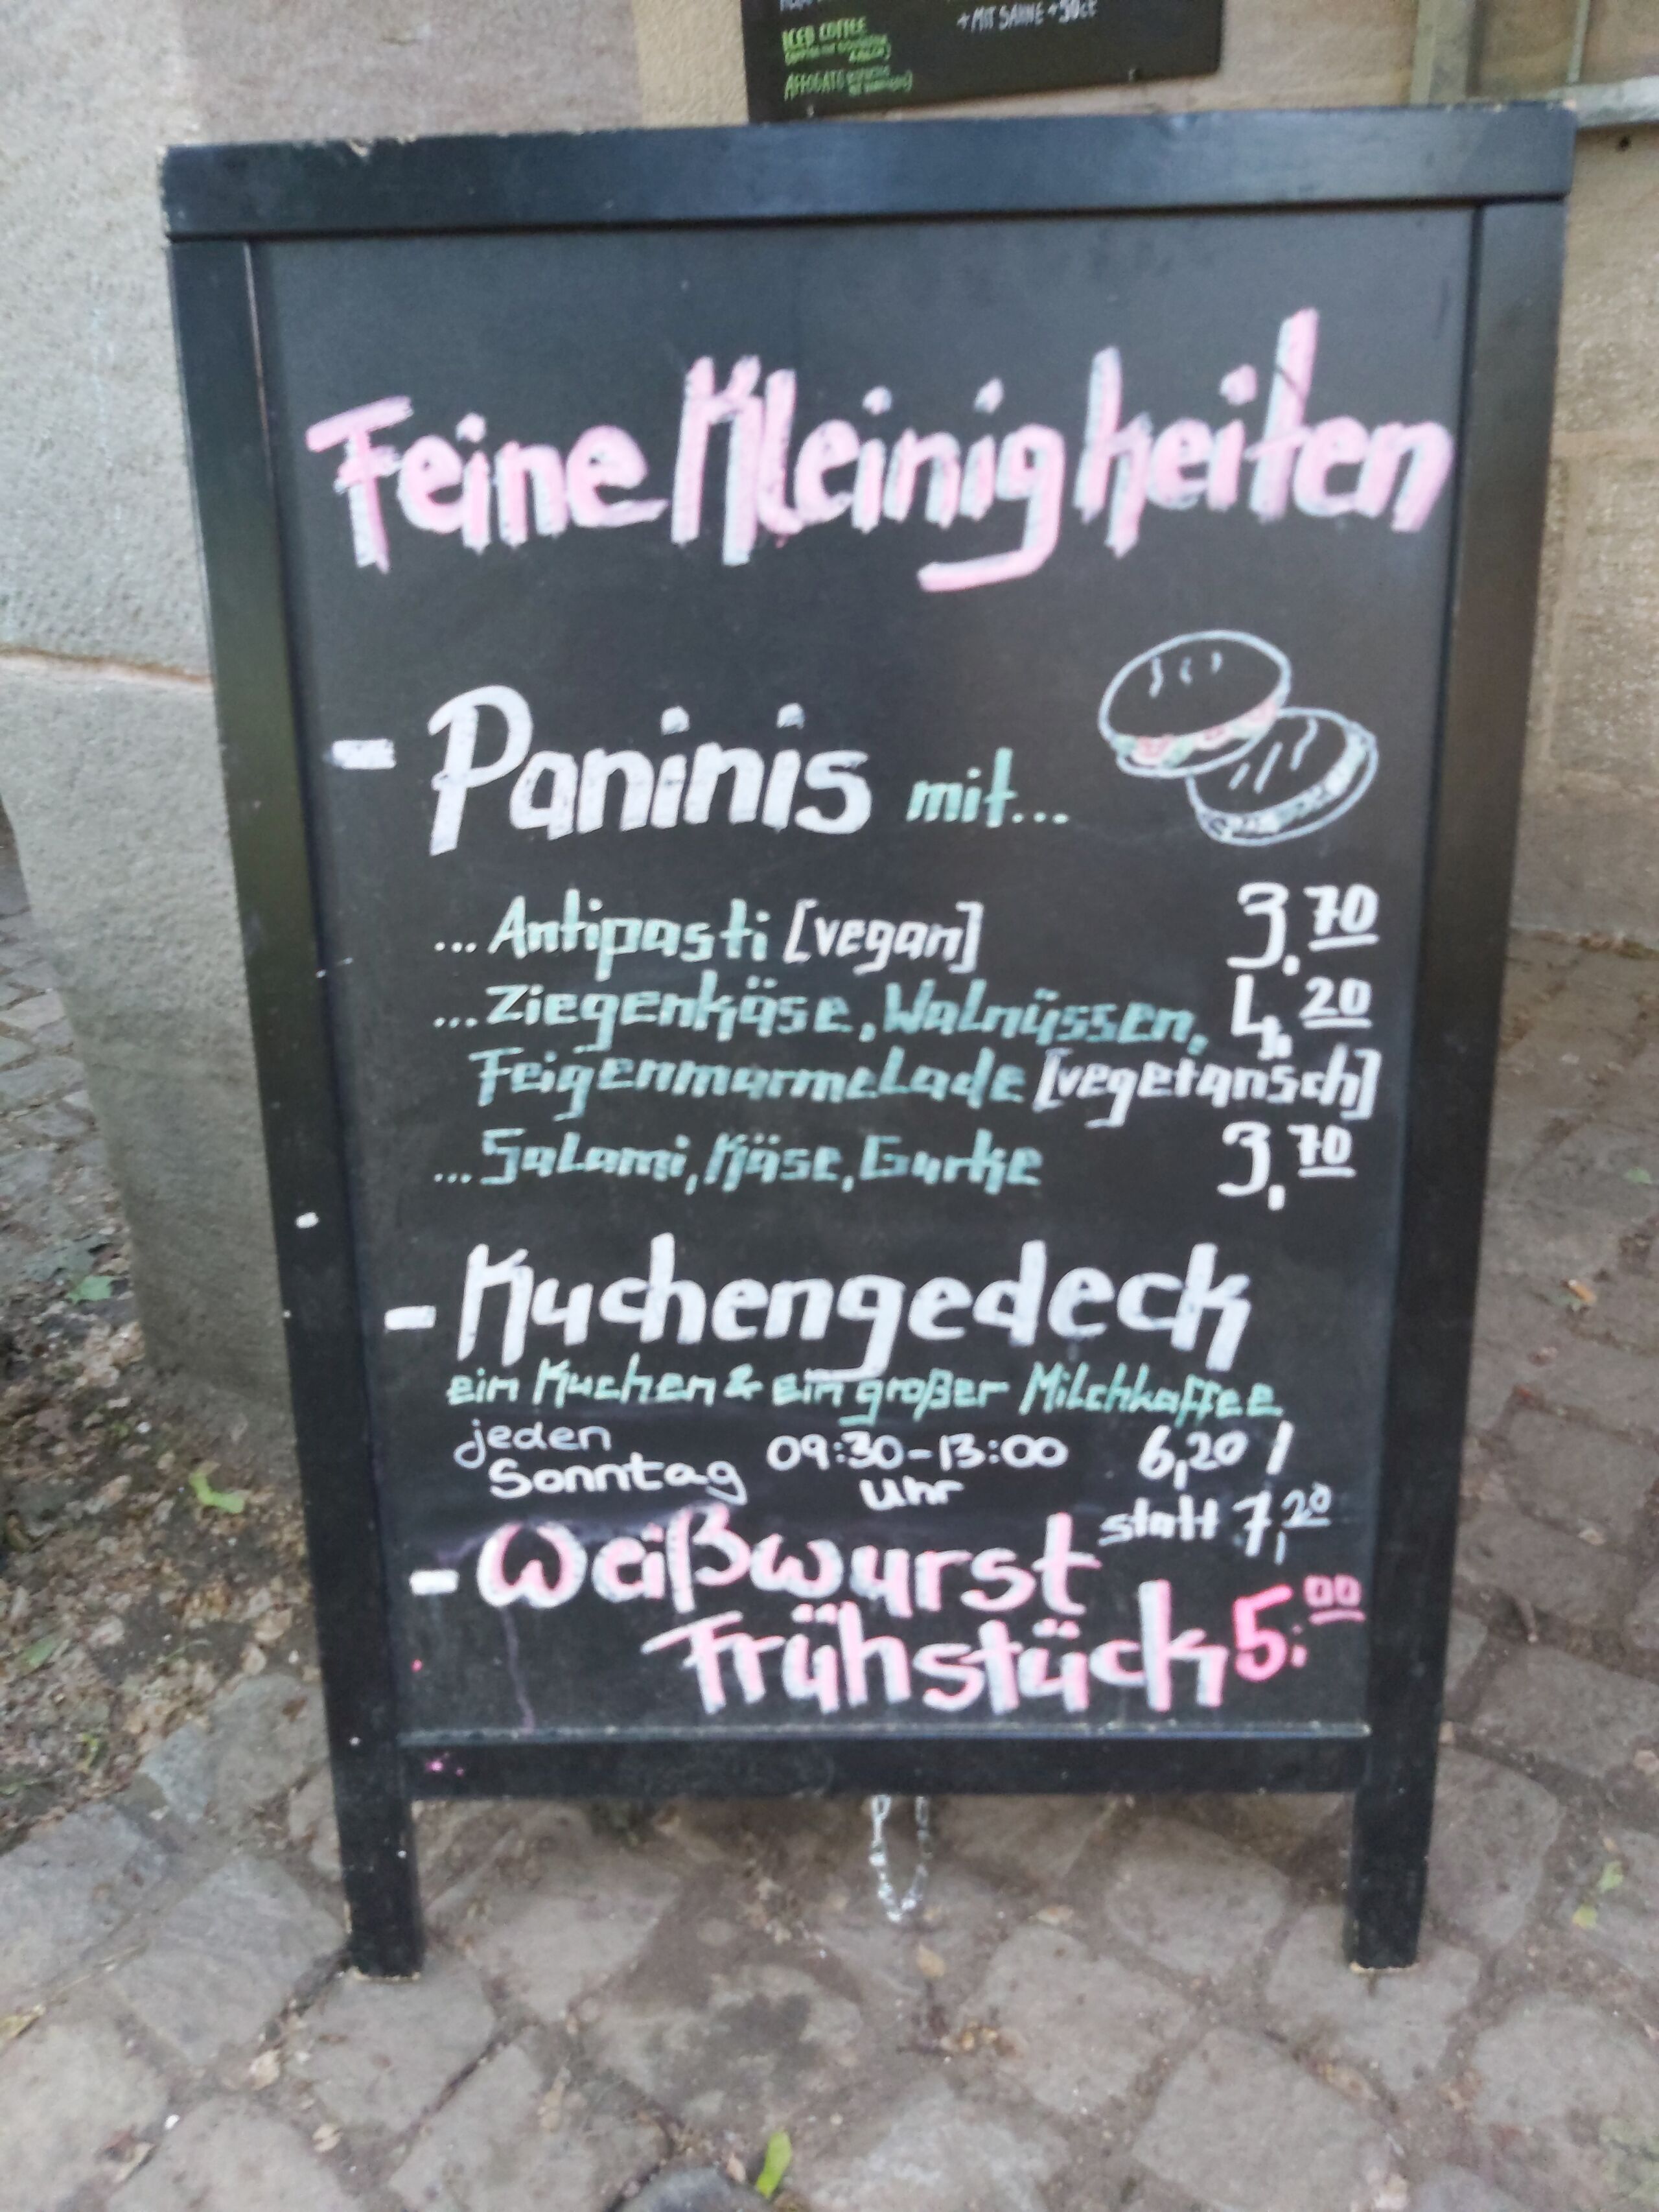 + MIT SAHNE + 50ct
ICED COFFEE
AFFOGATO
Feine Kleinigkeiten
- Paninis mit...
... Antipasti [vegan] 3,70
... Ziegenkäse, Walnüssen, 4,20
Feigenmarmelade [vegetarisch]
... Salami, Käse, Gurke 3,70
- Kuchengedeck
ein Kuchen & ein großer Milchkaffee
jeden Sonntag 09:30-13:00 Uhr
6,20 /
statt 7,20
- Weißwurst
Frühstück 5,00